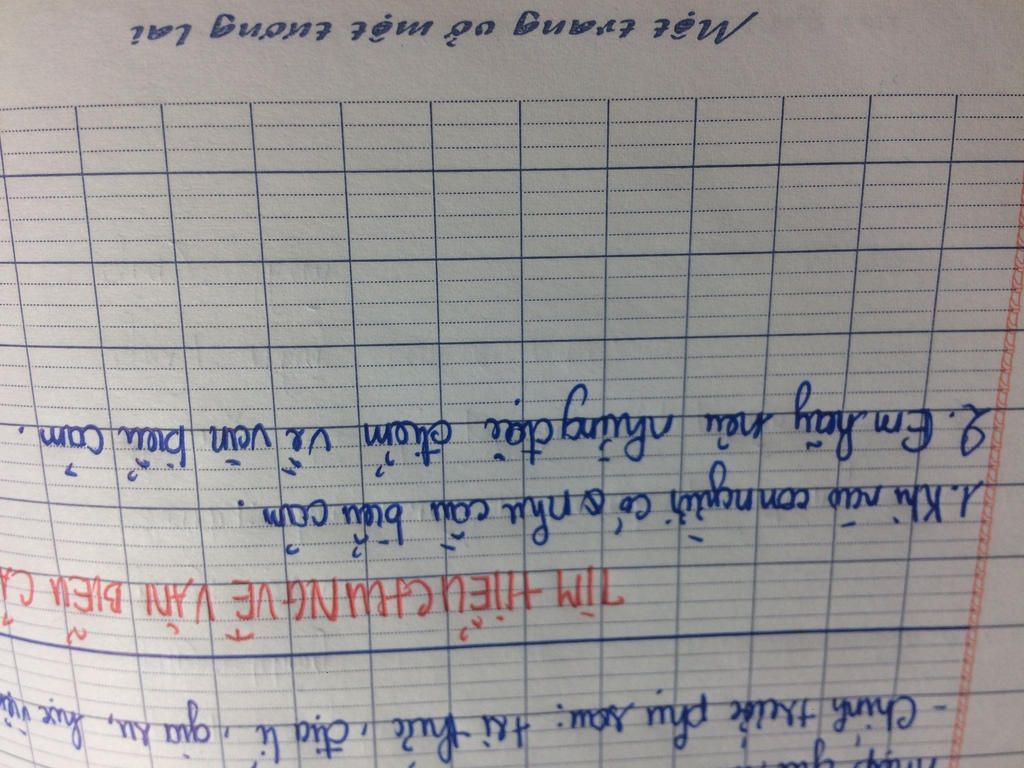 - Chính trước phụ sau: tri thức, địa lí, gia sư, học viện
TÌM HIỂU CHUNG VỀ VĂN BIỂU CẢ
1. Khi nào con người có nhu cầu biểu cảm.
2. Em hãy nêu những đặc điểm về văn biểu cảm.
Một trang vở một tương lai